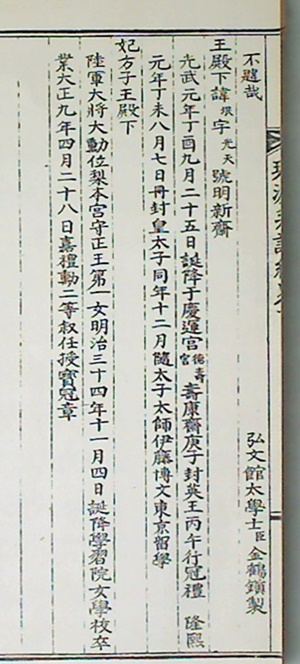 不韙哉
弘文館太學士臣金鶴鎭製
王殿下諱垠字光天號明新齋
光武元年丁酉九月二十五日誕降于慶運宮德壽宮壽康齋庚子封英王丙午行冠禮 隆熙
元年丁未八月七日冊封皇太子同年十二月隨太子太師伊藤博文東京留學
妃方子王殿下
陸軍大將大勳位梨本宮守正王第一女明治三十四年十一月四日誕降學習院女學校卒
業大正九年四月二十八日嘉禮勳二等敍任授寶冠章